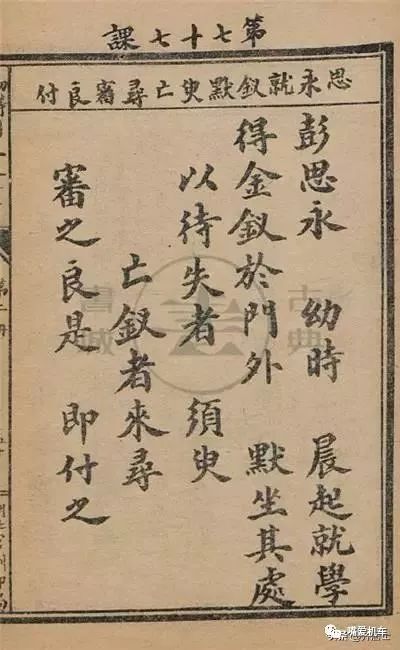 第七十七課
思永就釵默臾亡尋審良付
彭思永 幼時 晨起就學
得金釵於門外 默坐其處
以待失者 須臾
亡釵者來尋
審之良是 即付之
古典書城
第二册
头条
嘴爱机车